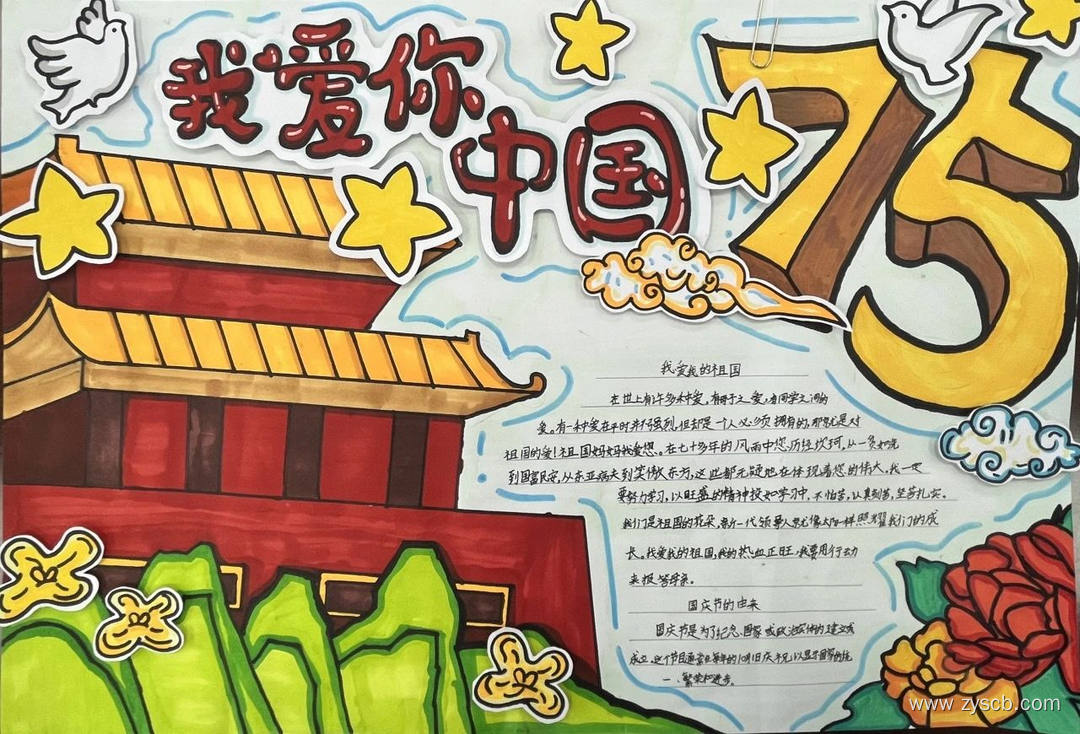 我爱你
中国
75
我爱我的祖国
在世上有许多种爱,有母子之爱,有同学之间的
爱。有一种爱在平时并不强烈,但却是一个人必须拥有的,那就是对
祖国的爱!祖国妈妈我爱您。在七十多年的风雨中您历经坎坷,从一贫如洗
到国富民安,从东亚病夫到笑傲东方,这些都无疑地在体现着您的伟大,我一定
要努力学习,以旺盛的精神投如学习中,不怕苦,认真刻苦,坚苦扎实。
我们是祖国的花朵,新一代领导人就像太阳一样照耀我们的成
长。我爱我的祖国,我的热血正旺,我要用行动
来报答母亲。
国庆节的由来
国庆节是为了纪念国家或政治实体的建立或
成立,这个节日通常在每年的10月1日庆祝,以显示国家的统
一、繁荣和进步。
www.zyscb.com